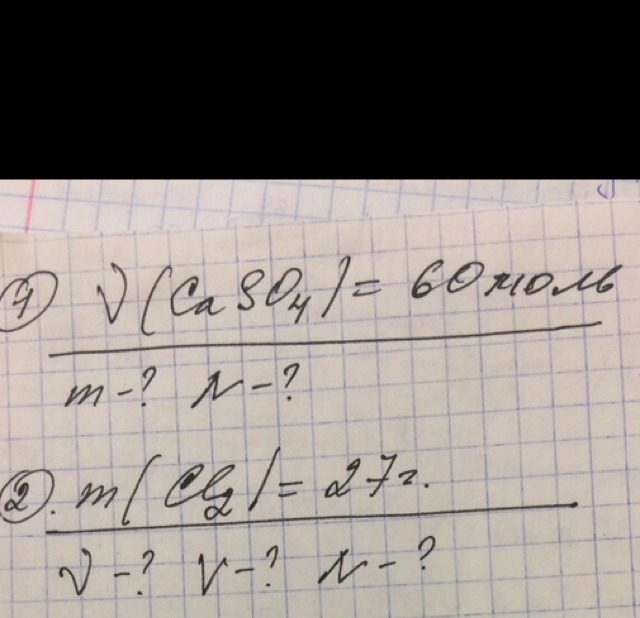 ① ν(CaSO₄) = 60 моль
m - ? N - ?
②. m(Cl₂) = 27г.
ν - ? V - ? N - ?